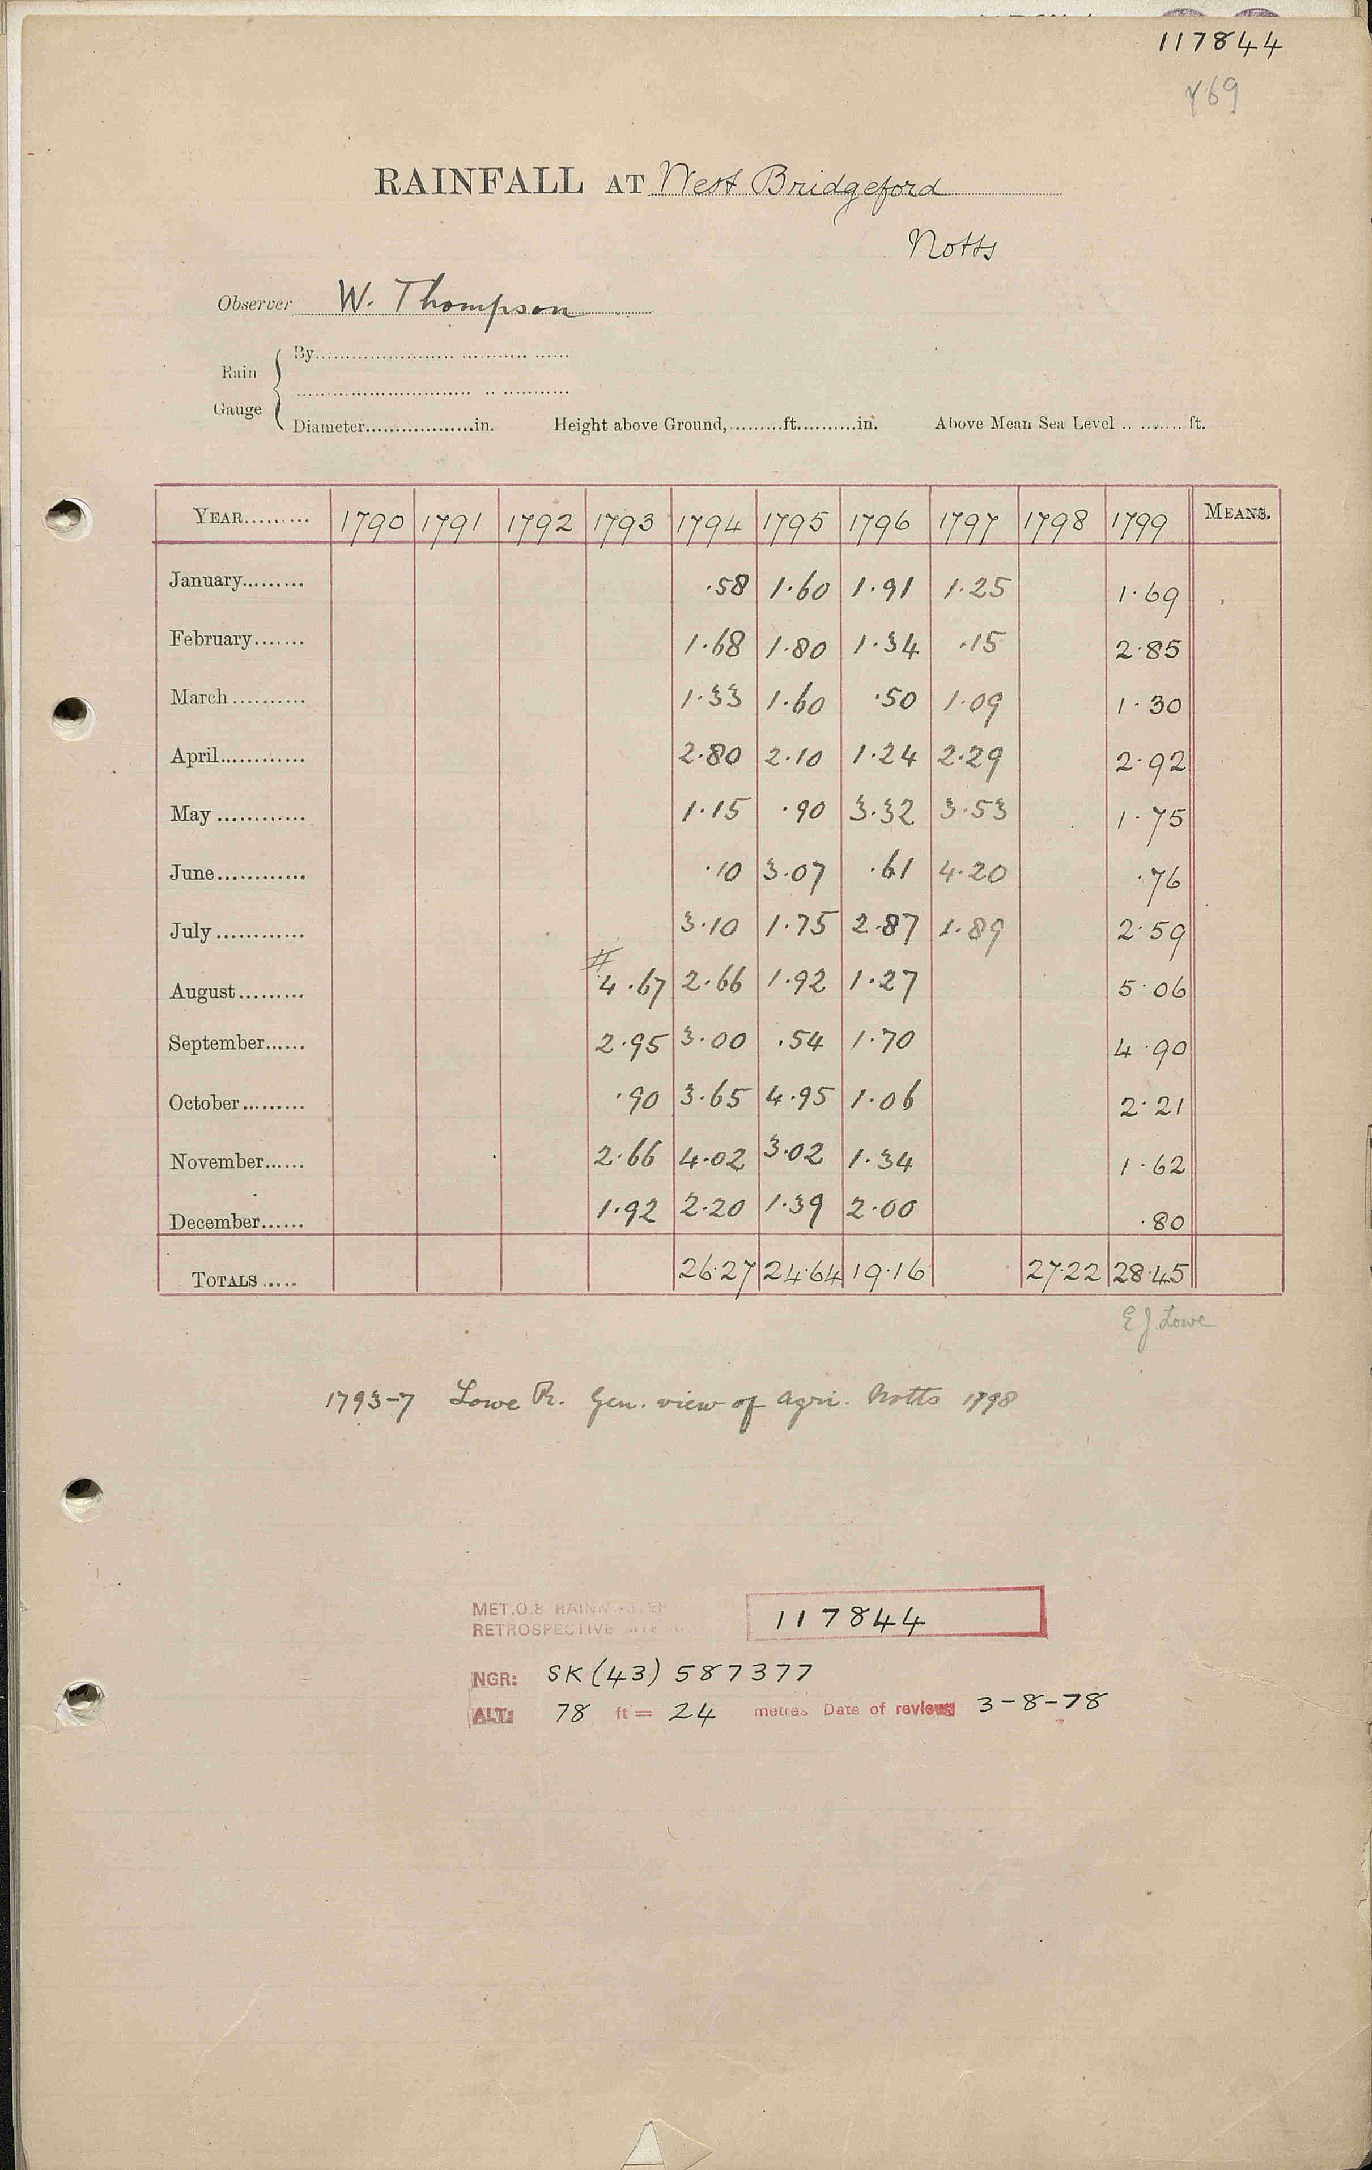 117844
769
RAINFALL AT West Bridgeford
Notts
Observer W. Thompson
Rain Gauge
By
Diameter in. Height above Ground, ft. in. Above Mean Sea Level ft.
YEAR 1790 1791 1792 1793 1794 1795 1796 1797 1798 1799 MEANS.
January .58 1.60 1.91 1.25 1.69
February 1.68 1.80 1.34 .15 2.85
March 1.33 1.60 .50 1.09 1.30
April 2.80 2.10 1.24 2.29 2.92
May 1.15 .90 3.32 3.53 1.75
June .10 3.07 .61 4.20 .76
July 3.10 1.75 2.87 1.89 2.59
August # 4.67 2.66 1.92 1.27 5.06
September 2.95 3.00 .54 1.70 4.90
October .90 3.65 4.95 1.06 2.21
November 2.66 4.02 3.02 1.34 1.62
December 1.92 2.20 1.39 2.00 .80
TOTALS 26.27 24.64 19.16 27.22 28.45
E J. Lowe
1793-7 Lowe R. Gen. view of Agri. Notts 1798
MET.O.8
RETROSPECTIVE
117844
NGR: SK (43) 587377
ALT: 78 ft = 24 metres Date of review 3-8-78